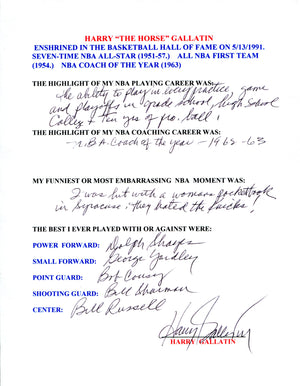 HARRY "THE HORSE" GALLATIN
ENSHRINED IN THE BASKETBALL HALL OF FAME ON 5/13/1991.
SEVEN-TIME NBA ALL-STAR (1951-57.) ALL NBA FIRST TEAM
(1954.) NBA COACH OF THE YEAR (1963)
THE HIGHLIGHT OF MY NBA PLAYING CAREER WAS:
the ability to play in every practice, game
and playoffs in grade school, high School
College + ten yrs of pro. ball!
THE HIGHLIGHT OF MY NBA COACHING CAREER WAS:
N.B.A. Coach of the year - 1962-63
MY FUNNIEST OR MOST EMBARRASSING NBA MOMENT WAS:
I was hit with a womans pocketbook
in Syracuse; they hated the Knicks!
THE BEST I EVER PLAYED WITH OR AGAINST WERE:
POWER FORWARD: Dolph Shayes
SMALL FORWARD: George Yardley
POINT GUARD: Bob Cousy
SHOOTING GUARD: Bill Sharman
CENTER: Bill Russell
Harry Gallatin
HARRY GALLATIN